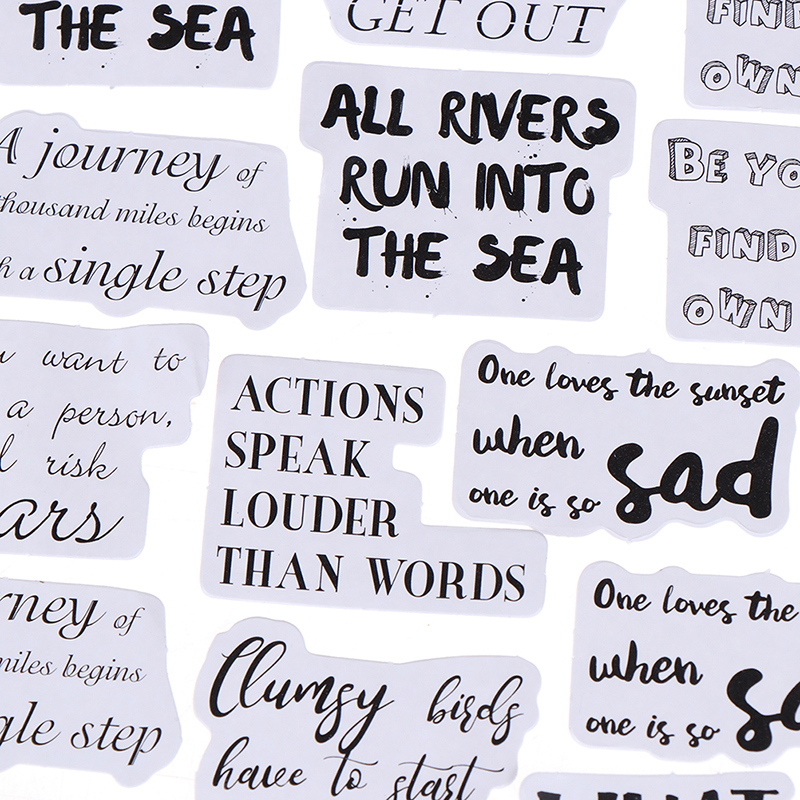 THE SEA
GET OUT
FIND
OWN
A journey of
thousand miles begins
a single step
ALL RIVERS
RUN INTO
THE SEA
BE YO
FIND
OWN
want to
a person,
risk
ars
ACTIONS
SPEAK
LOUDER
THAN WORDS
One loves the sunset
when sad
one is so
rney of
miles begins
gle step
Clumsy birds
have to start
One loves the
when sa
one is so